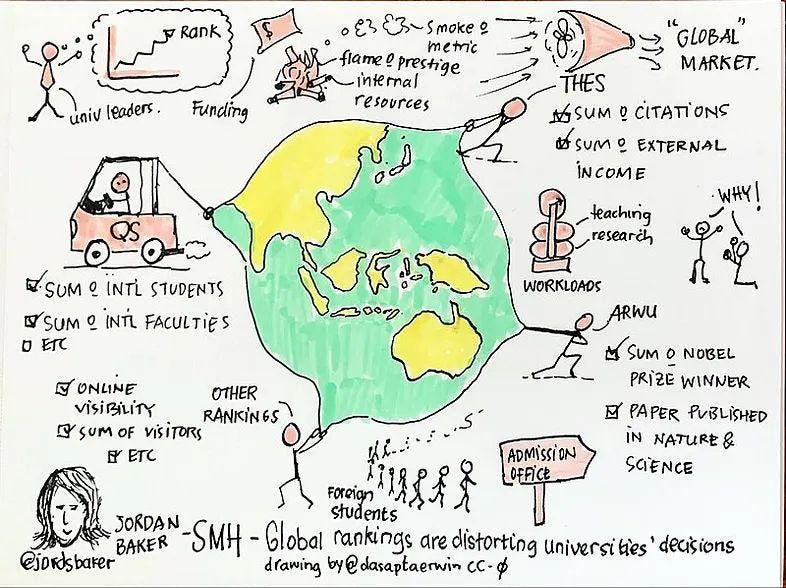 RANK
univ leaders.
$
Funding
smoke o metric
flame o prestige
internal
resources
"GLOBAL"
MARKET.
THES
SUM O CITATIONS
SUM O EXTERNAL
INCOME
QS
SUM O INTL STUDENTS
SUM O INTL FACULTIES
ETC
teaching
research
WORKLOADS
WHY!
ARWU
SUM O NOBEL
PRIZE WINNER
PAPER PUBLISHED
IN NATURE &
SCIENCE
ONLINE
VISIBILITY
SUM OF VISITORS
ETC
OTHER
RANKINGS
Foreign
students
ADMISSION
OFFICE
@jordsbaker
JORDAN
BAKER
-SMH - Global rankings are distorting universities' decisions
drawing by @dasaptaerwin CC-0